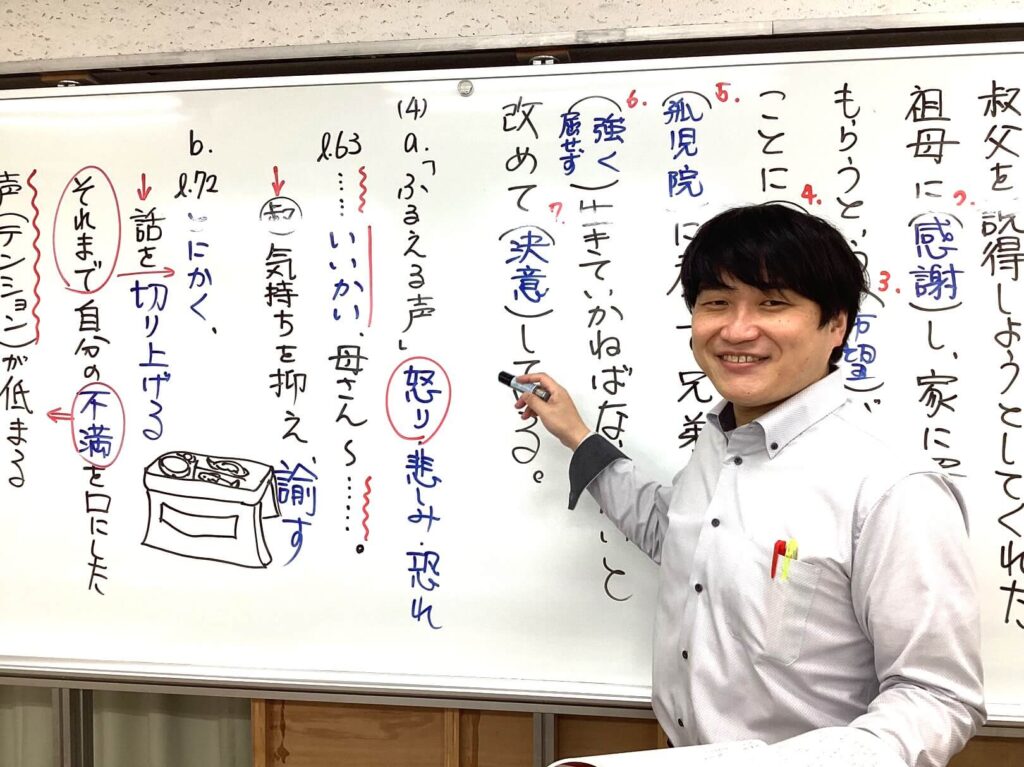 叔父を説得しようとしてくれた
2.
祖母に(感謝)し、家に
3.
もらうという(希望)が
4.
ことに
5.
(孤児院)に 兄弟
6.
(強く
屈せず)生きていかねばな いと
7.
改めて(決意)して る。
(4)
a.「ふるえる声」怒り・悲しみ・恐れ
l.63 ……いいかい、母さん〜……。
気持ちを抑え、諭す
b.
l.72 とにかく、
話を切り上げる
それまで自分の不満を口にした
声(テンション)が低まる